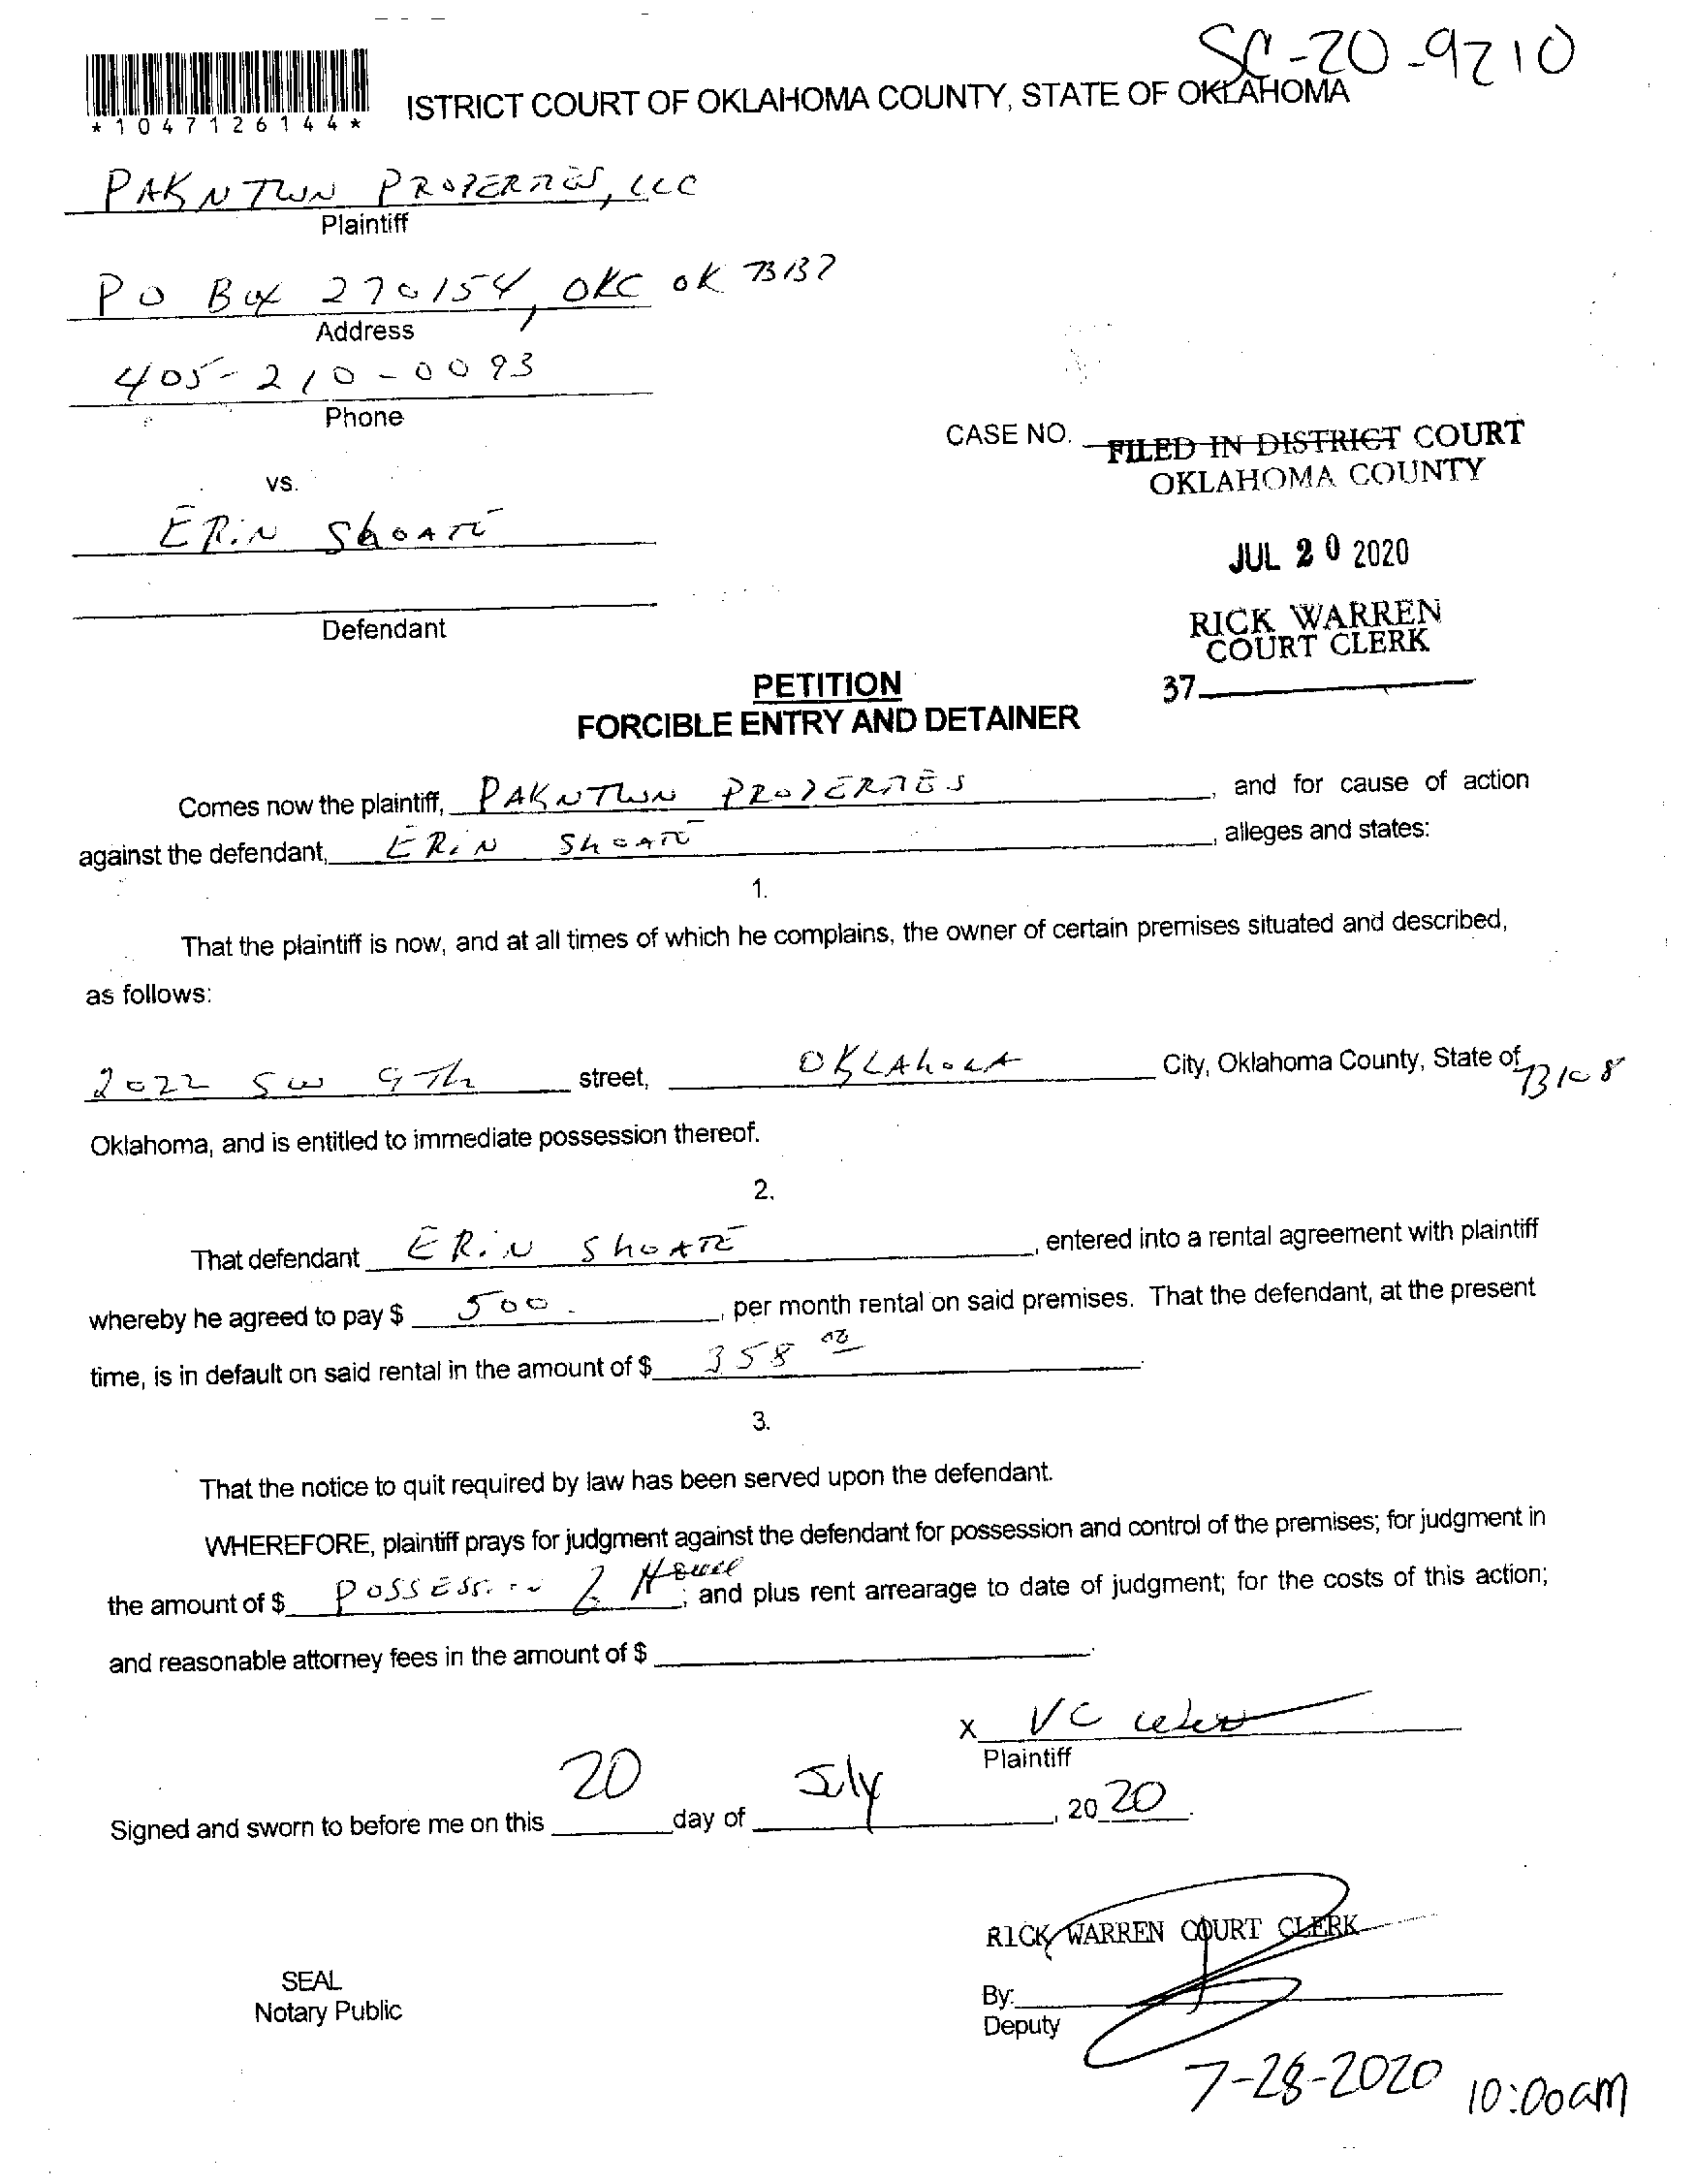 SC-20-9210
*1047126144*
ISTRICT COURT OF OKLAHOMA COUNTY, STATE OF OKLAHOMA
PAKNTWN PROPERTIES, LLC
Plaintiff
PO Box 270154, OKC OK 73137
Address
405-210-0093
Phone
CASE NO.
FILED IN DISTRICT COURT
OKLAHOMA COUNTY
vs.
ERiN ShOATE
JUL 20 2020
Defendant
RICK WARREN
COURT CLERK
37
PETITION
FORCIBLE ENTRY AND DETAINER
Comes now the plaintiff, PAKNTWN PROPERTIES, and for cause of action
against the defendant, ERiN ShOATE, alleges and states:
1.
That the plaintiff is now, and at all times of which he complains, the owner of certain premises situated and described,
as follows:
2022 SW 9Th street, OKLAhOMA City, Oklahoma County, State of 73108
Oklahoma, and is entitled to immediate possession thereof.
2.
That defendant ERiN ShOATE, entered into a rental agreement with plaintiff
whereby he agreed to pay $ 500., per month rental on said premises. That the defendant, at the present
time, is in default on said rental in the amount of $ 358 00.
3.
That the notice to quit required by law has been served upon the defendant.
WHEREFORE, plaintiff prays for judgment against the defendant for possession and control of the premises; for judgment in
the amount of $ POSSESSiON House; and plus rent arrearage to date of judgment; for the costs of this action;
and reasonable attorney fees in the amount of $ .
X VC
Plaintiff
Signed and sworn to before me on this 20 day of July, 2020.
RICK WARREN COURT CLERK
SEAL
Notary Public
By:
Deputy
7-28-2020 10:00am